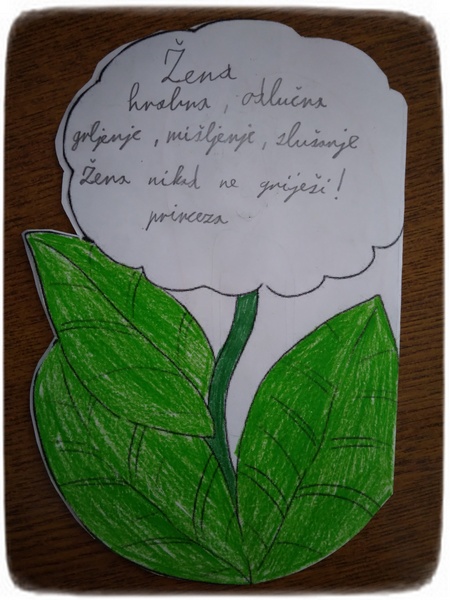 Žena
hrabra, odlučna
grljenje, mišljenje, slušanje
Žena nikad ne griješi!
princeza